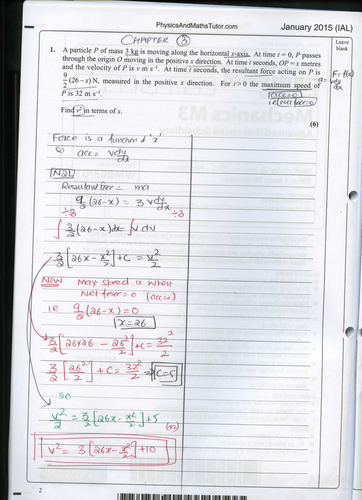 PhysicsAndMathsTutor.com
January 2015 (IAL)
CHAPTER 3
Leave
blank
1. A particle P of mass 3 kg is moving along the horizontal x-axis. At time t = 0, P passes
through the origin O moving in the positive x direction. At time t seconds, OP = x metres
and the velocity of P is v m s⁻¹. At time t seconds, the resultant force acting on P is
9/2 (26 – x) N, measured in the positive x direction. For t > 0 the maximum speed of
P is 32 m s⁻¹.
F = f(x)
a = vdv/dx
acc=0
Find v² in terms of x.
(6)
Force is a function of 'x'
so acc = vdv/dx
N2L
Resultant force = ma
9/2 (26-x) = 3 v dv/dx
÷3 ÷3
∫ 3/2 (26-x) dx = ∫ v dv
3/2 [26x - x²/2] + c = v²/2
NOW Max speed is when
Net force = 0 (acc=0)
ie 9/2 (26-x) = 0
x = 26
3/2 [26x26 - 26²/2] + c = 32²/2
3/2 [26²/2] + c = 32²/2 ⇒ C=5
so
v²/2 = 3/2 [26x - x²/2] + 5
(x2)
v² = 3 [26x - x²/2] + 10
2